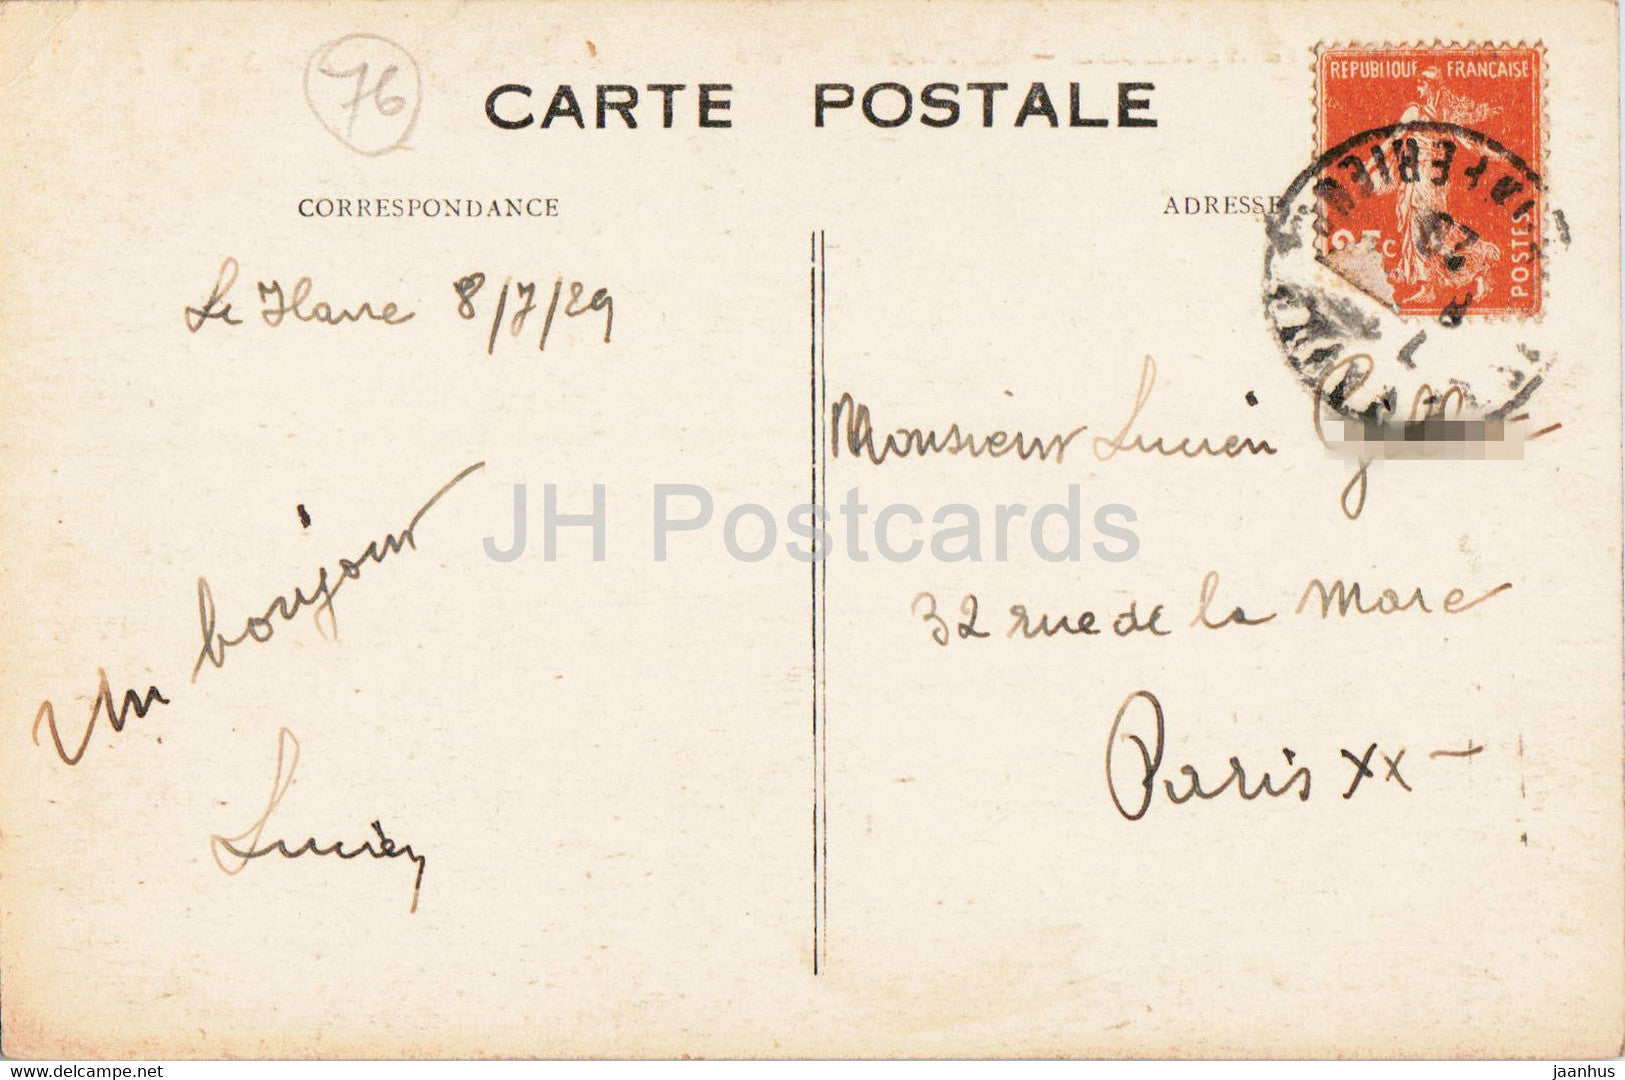 76
CARTE POSTALE
CORRESPONDANCE
ADRESSE
REPUBLIQUE FRANCAISE
POSTES
Le Havre 8/7/29
Un bonjour
Lucien
Monsieur Lucien
32 rue de la Mare
Paris XX
JH Postcards
delcampe.net
jaanhus